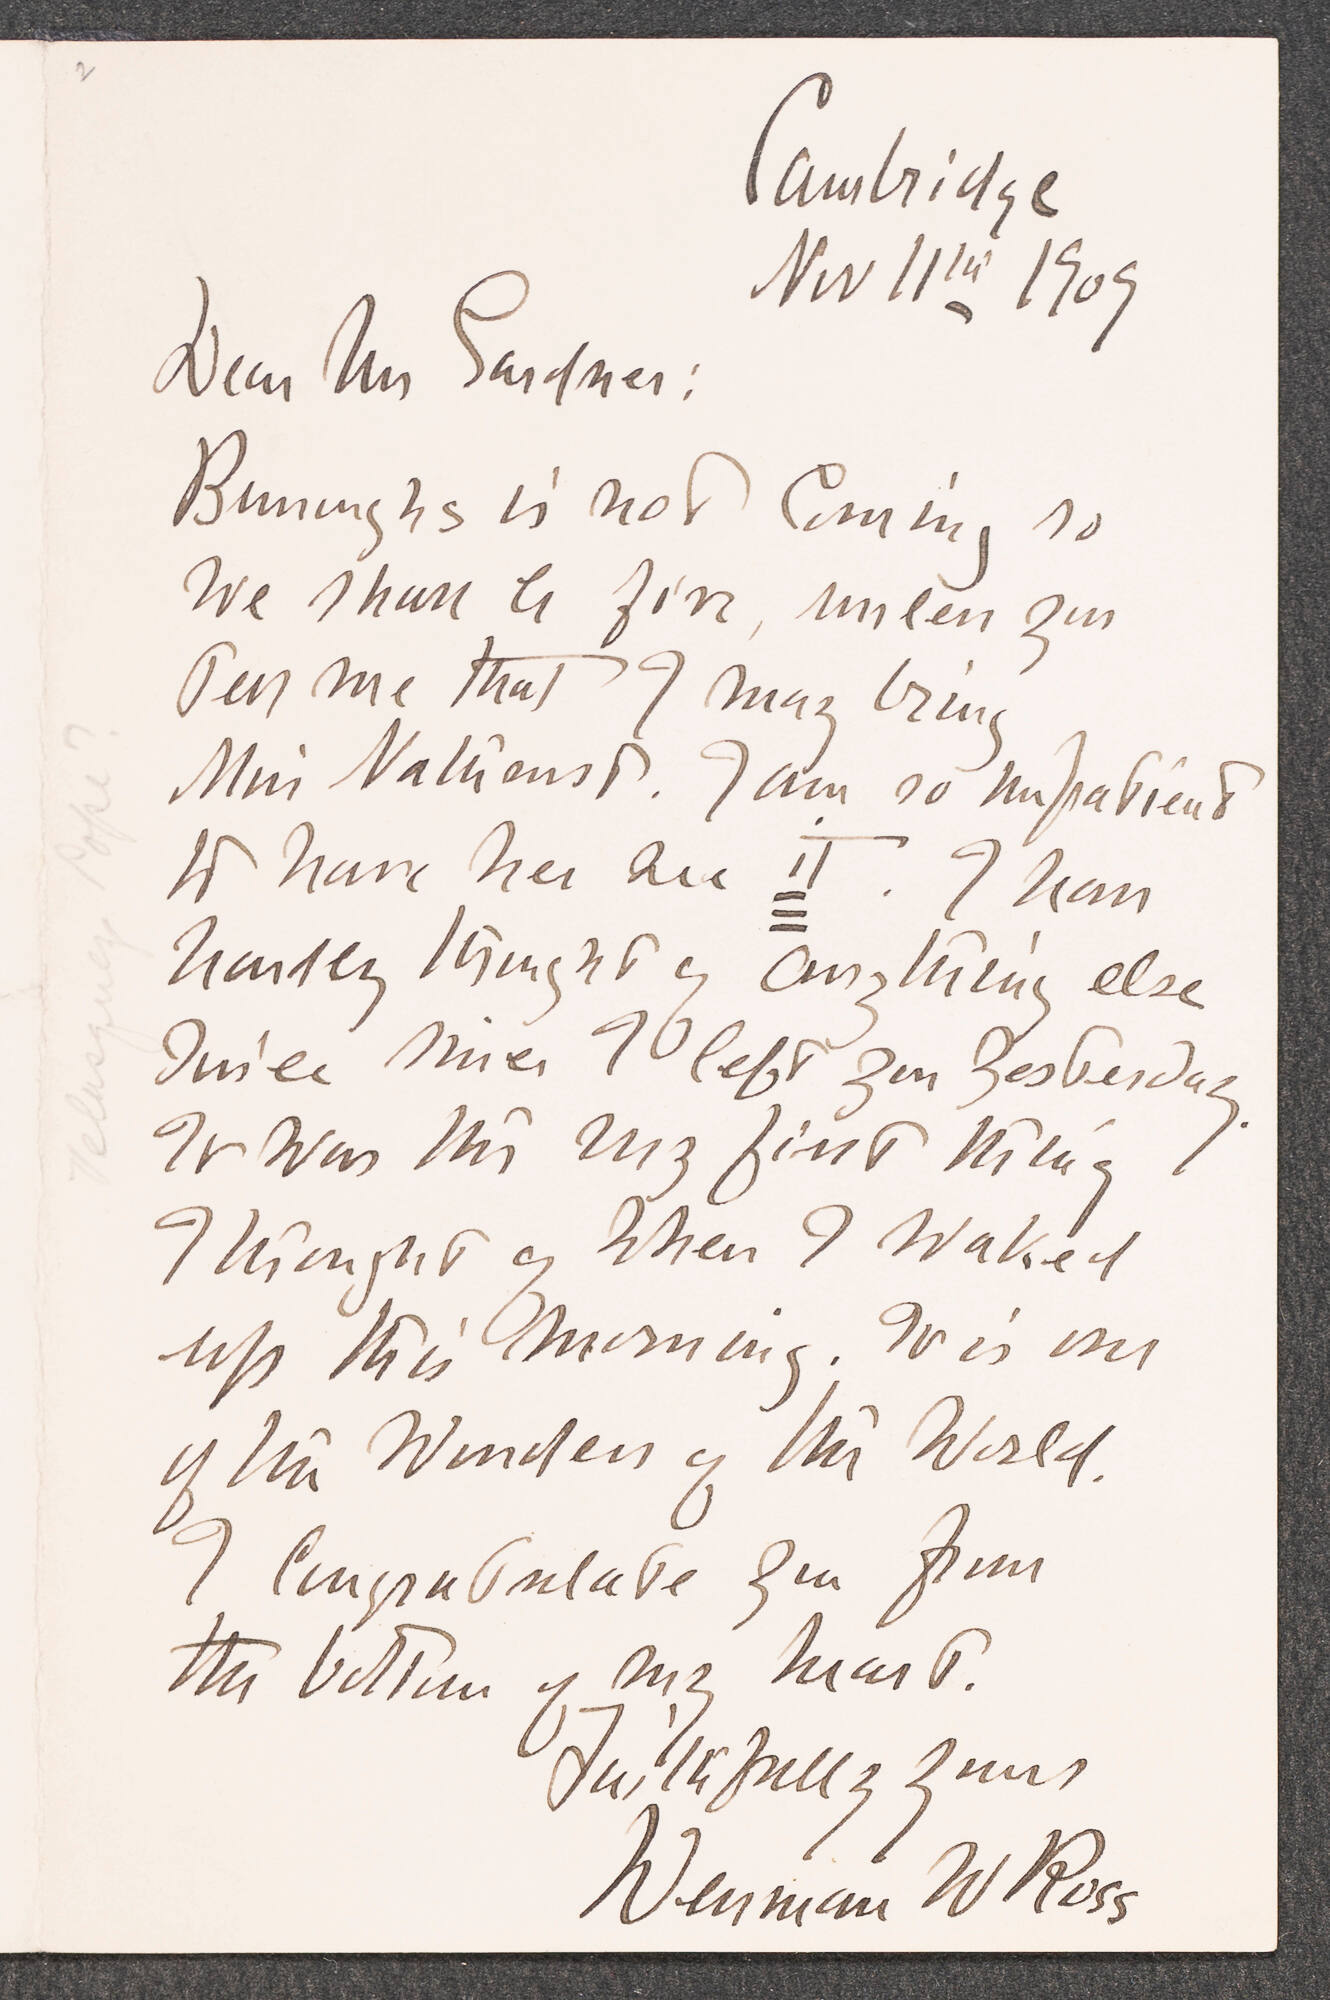 2
Cambridge
Nov 11th 1909
Dear Mrs Gardner:
Burroughs is not Coming so
We shall be five, unless you
tell me that I may bring
Miss Nathurst. I am so impatient
to have her see it. I have
hardly thought of anything else
since I left you yesterday.
It was the my first thing
I thought of when I waked
up this morning. It is one
of the Wonders of the World.
I Congratulate you from
the bottom of my heart.
Faithfully yours
Denman W Ross
Velasquez Pope?